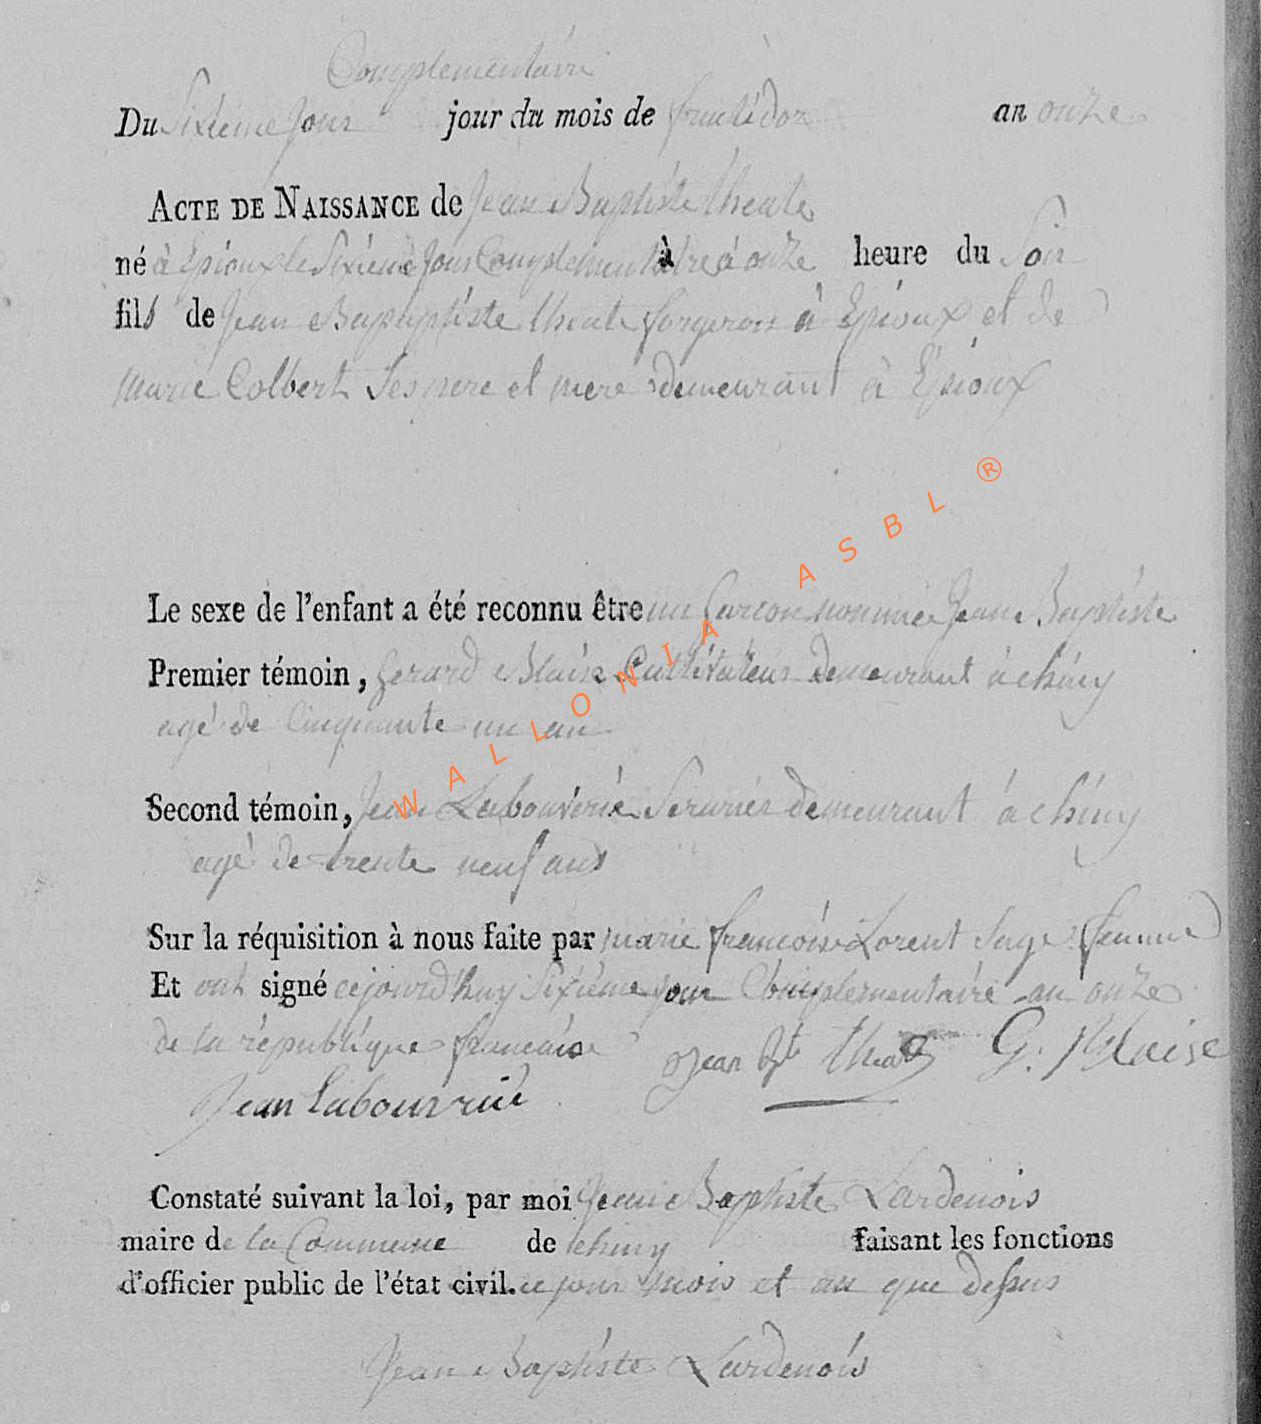 Complementaire
Du Sixieme Jour jour du mois de fructidor an onze
ACTE DE NAISSANCE de Jean Baptiste theate
né à Epioux le Sixieme Jour Complementaire à à onze heure du Soir
fils de Jean Bapaptiste theate forgeron à Epioux et de
marie Colbert Ses pere et mere demeurant à Epioux
Le sexe de l'enfant a été reconnu être un garcon nommé Jean Baptiste
Premier témoin, gerard Blaise Cultivateur demeurant à chiny
agé de Cinquante un an
Second témoin, Jean Labouverie Serurier demeurant à chiny
agé de trente neuf ans
Sur la réquisition à nous faite par marie francoise Lorent Sage femme
Et ont signé cejourdhuy Sixième jour Complementaire an onze
de la république francaise Jean Bte theate G. Blaise
Jean Labouvrie
Constaté suivant la loi, par moi Jean Baptiste Lardenois
maire de la Commune de chiny faisant les fonctions
d'officier public de l'état civil. ce jour mois et an que dessus
Jean Baptiste Lardenois
WALLONIA ASBL ®